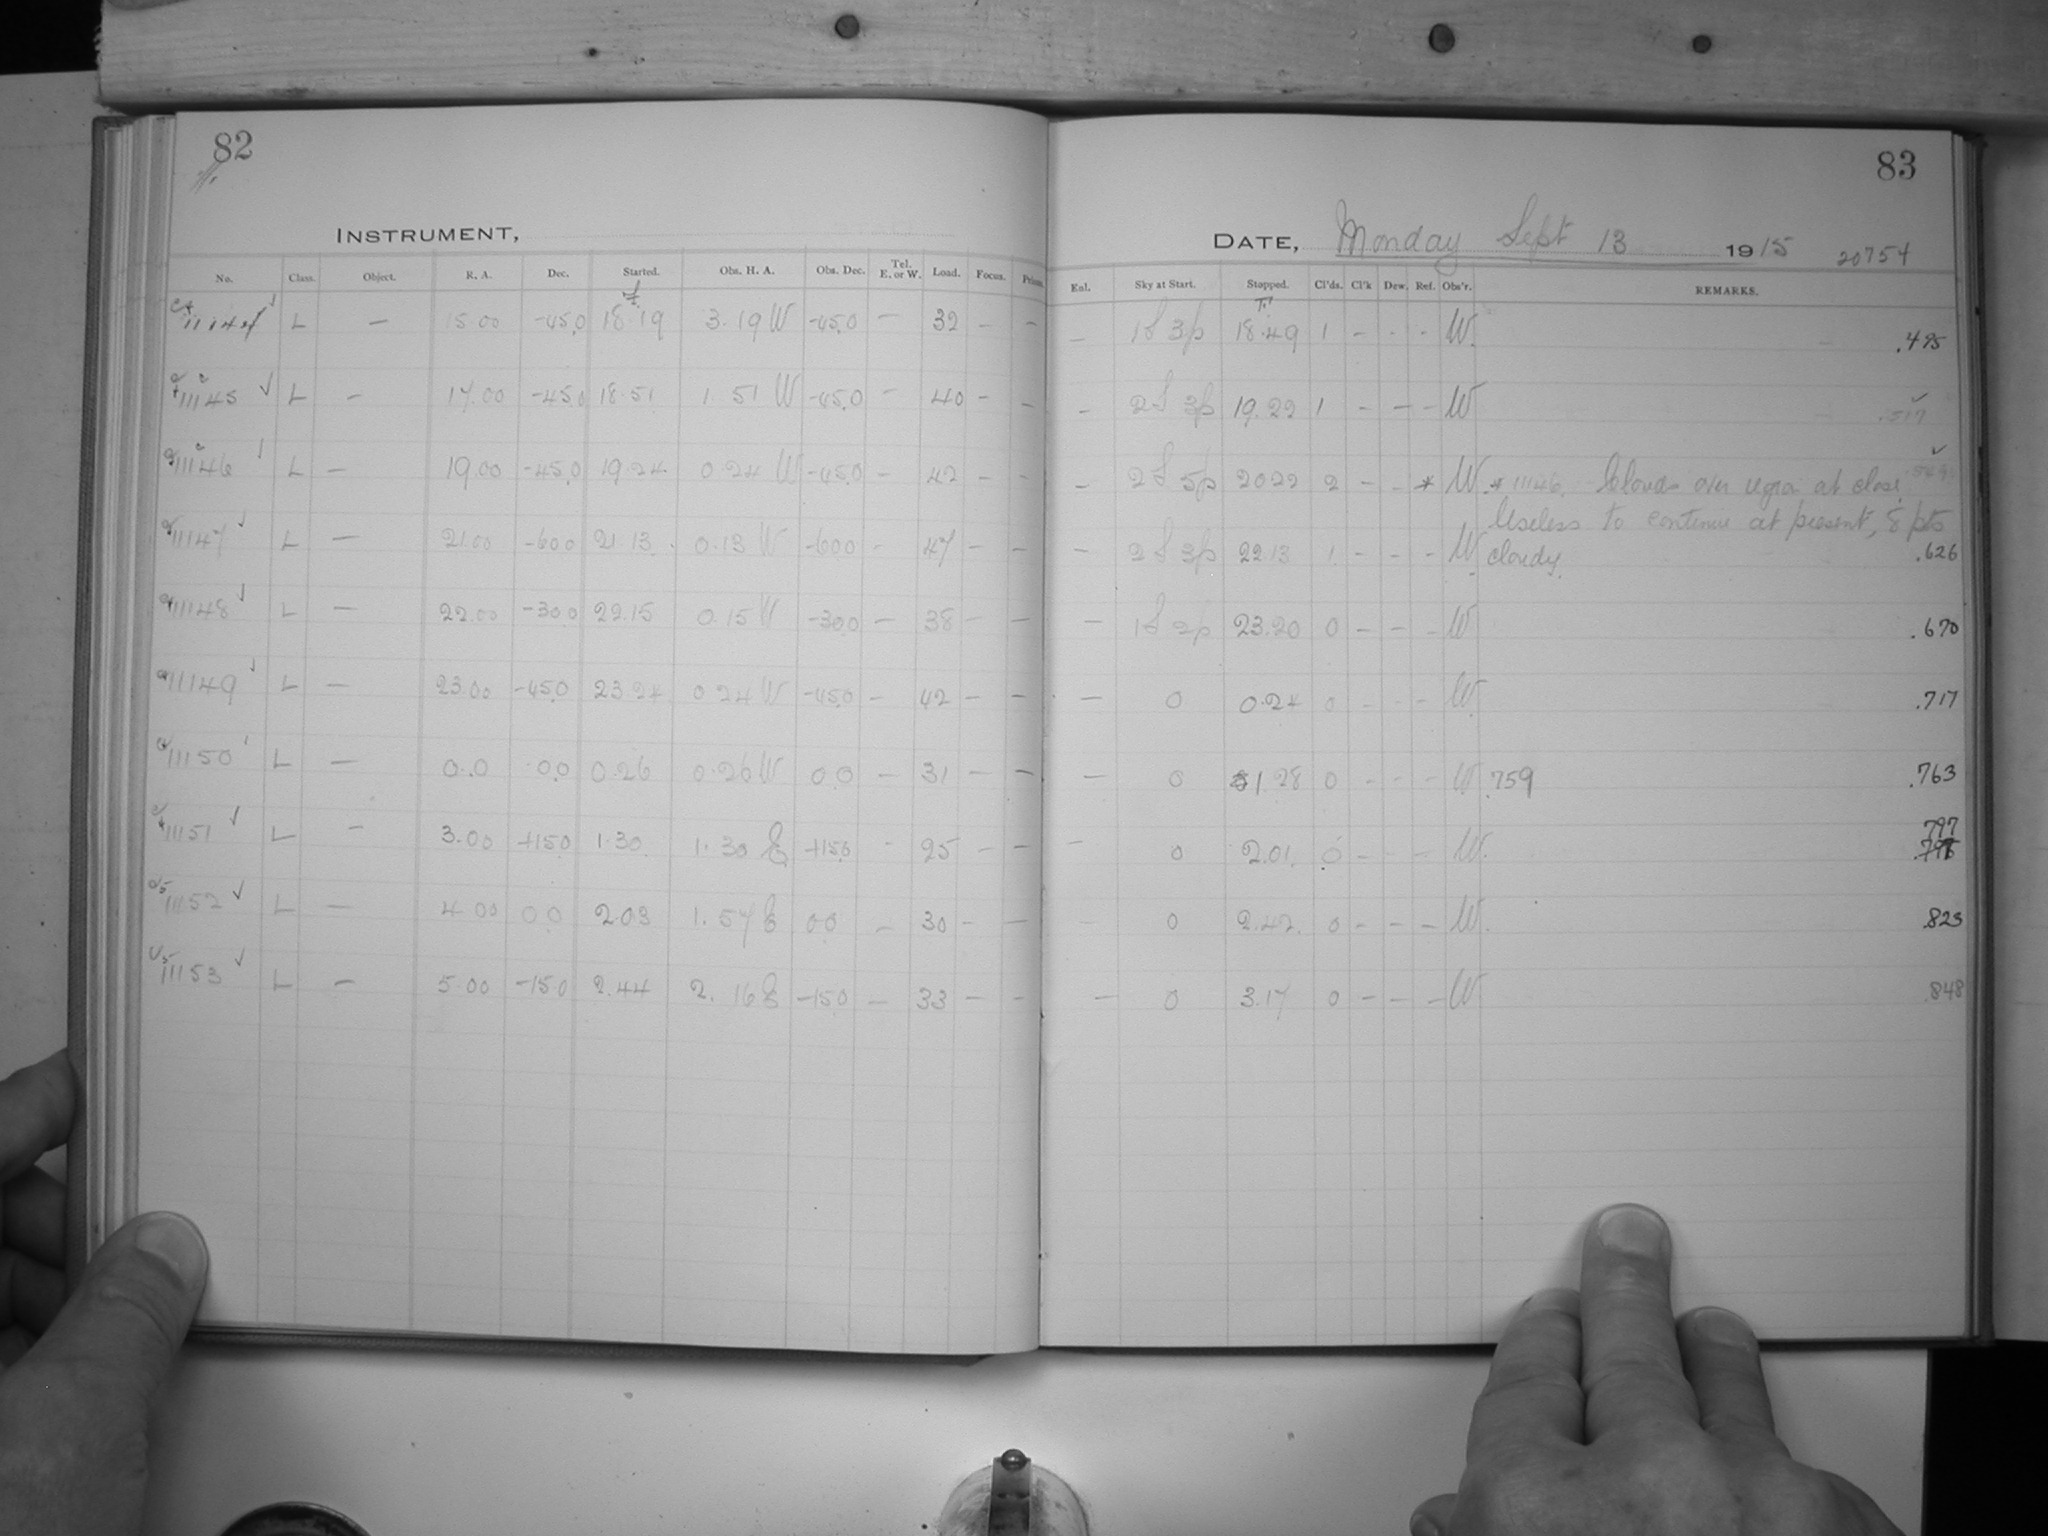 82
INSTRUMENT,
No. Class. Object. R. A. Dec. Started. Obs. H. A. Obs. Dec. Tel. E. or W. Load. Focus.
11144 L — 15.00 -45.0 18.19 3.19 W -45.0 — 32 — —
11145 L — 17.00 -45.0 18.51 1.51 W -45.0 — 40 — —
11146 L — 19.00 -45.0 19.24 0.24 W -45.0 — 42 — —
11147 L — 21.00 -60.0 21.13 0.13 W -60.0 — 47 — —
11148 L — 22.00 -30.0 22.15 0.15 W -30.0 — 38 — —
11149 L — 23.00 -45.0 23.24 0.24 W -45.0 — 42 — —
11150 L — 0.0 0.0 0.26 0.26 W 0.0 — 31 — —
11151 L — 3.00 +15.0 1.30 1.30 E +15.0 - 25 — —
11152 L — 4.00 0.0 2.03 1.57 E 0.0 — 30 — —
11153 L — 5.00 -15.0 2.44 2.16 E -15.0 — 33 — —
83
DATE, Monday Sept 13 1915 20754
Enl. Sky at Start. Stopped. Cl'ds. Cl'k Dew. Ref. Obs'r. REMARKS.
— 1S 3p 18.49 1 - - - W. .495
— 2S 3p 19.22 1 - - - W .517
— 2S 5p 20.22 2 - - * W. * 11146. Clouds over region at close.
Useless to continue at present, 8 pts
— 2S 3p 22.13 1 - - - W cloudy. .626
— 1S 2p 23.20 0 - - - W .670
— 0 0.24 0 - - - W. .717
— 0 1.28 0 - - - W .759 .763
797
— 0 2.01. 0 - - - W.
— 0 2.42. 0 - - - W. .823
— 0 3.17 0 - - - W .848